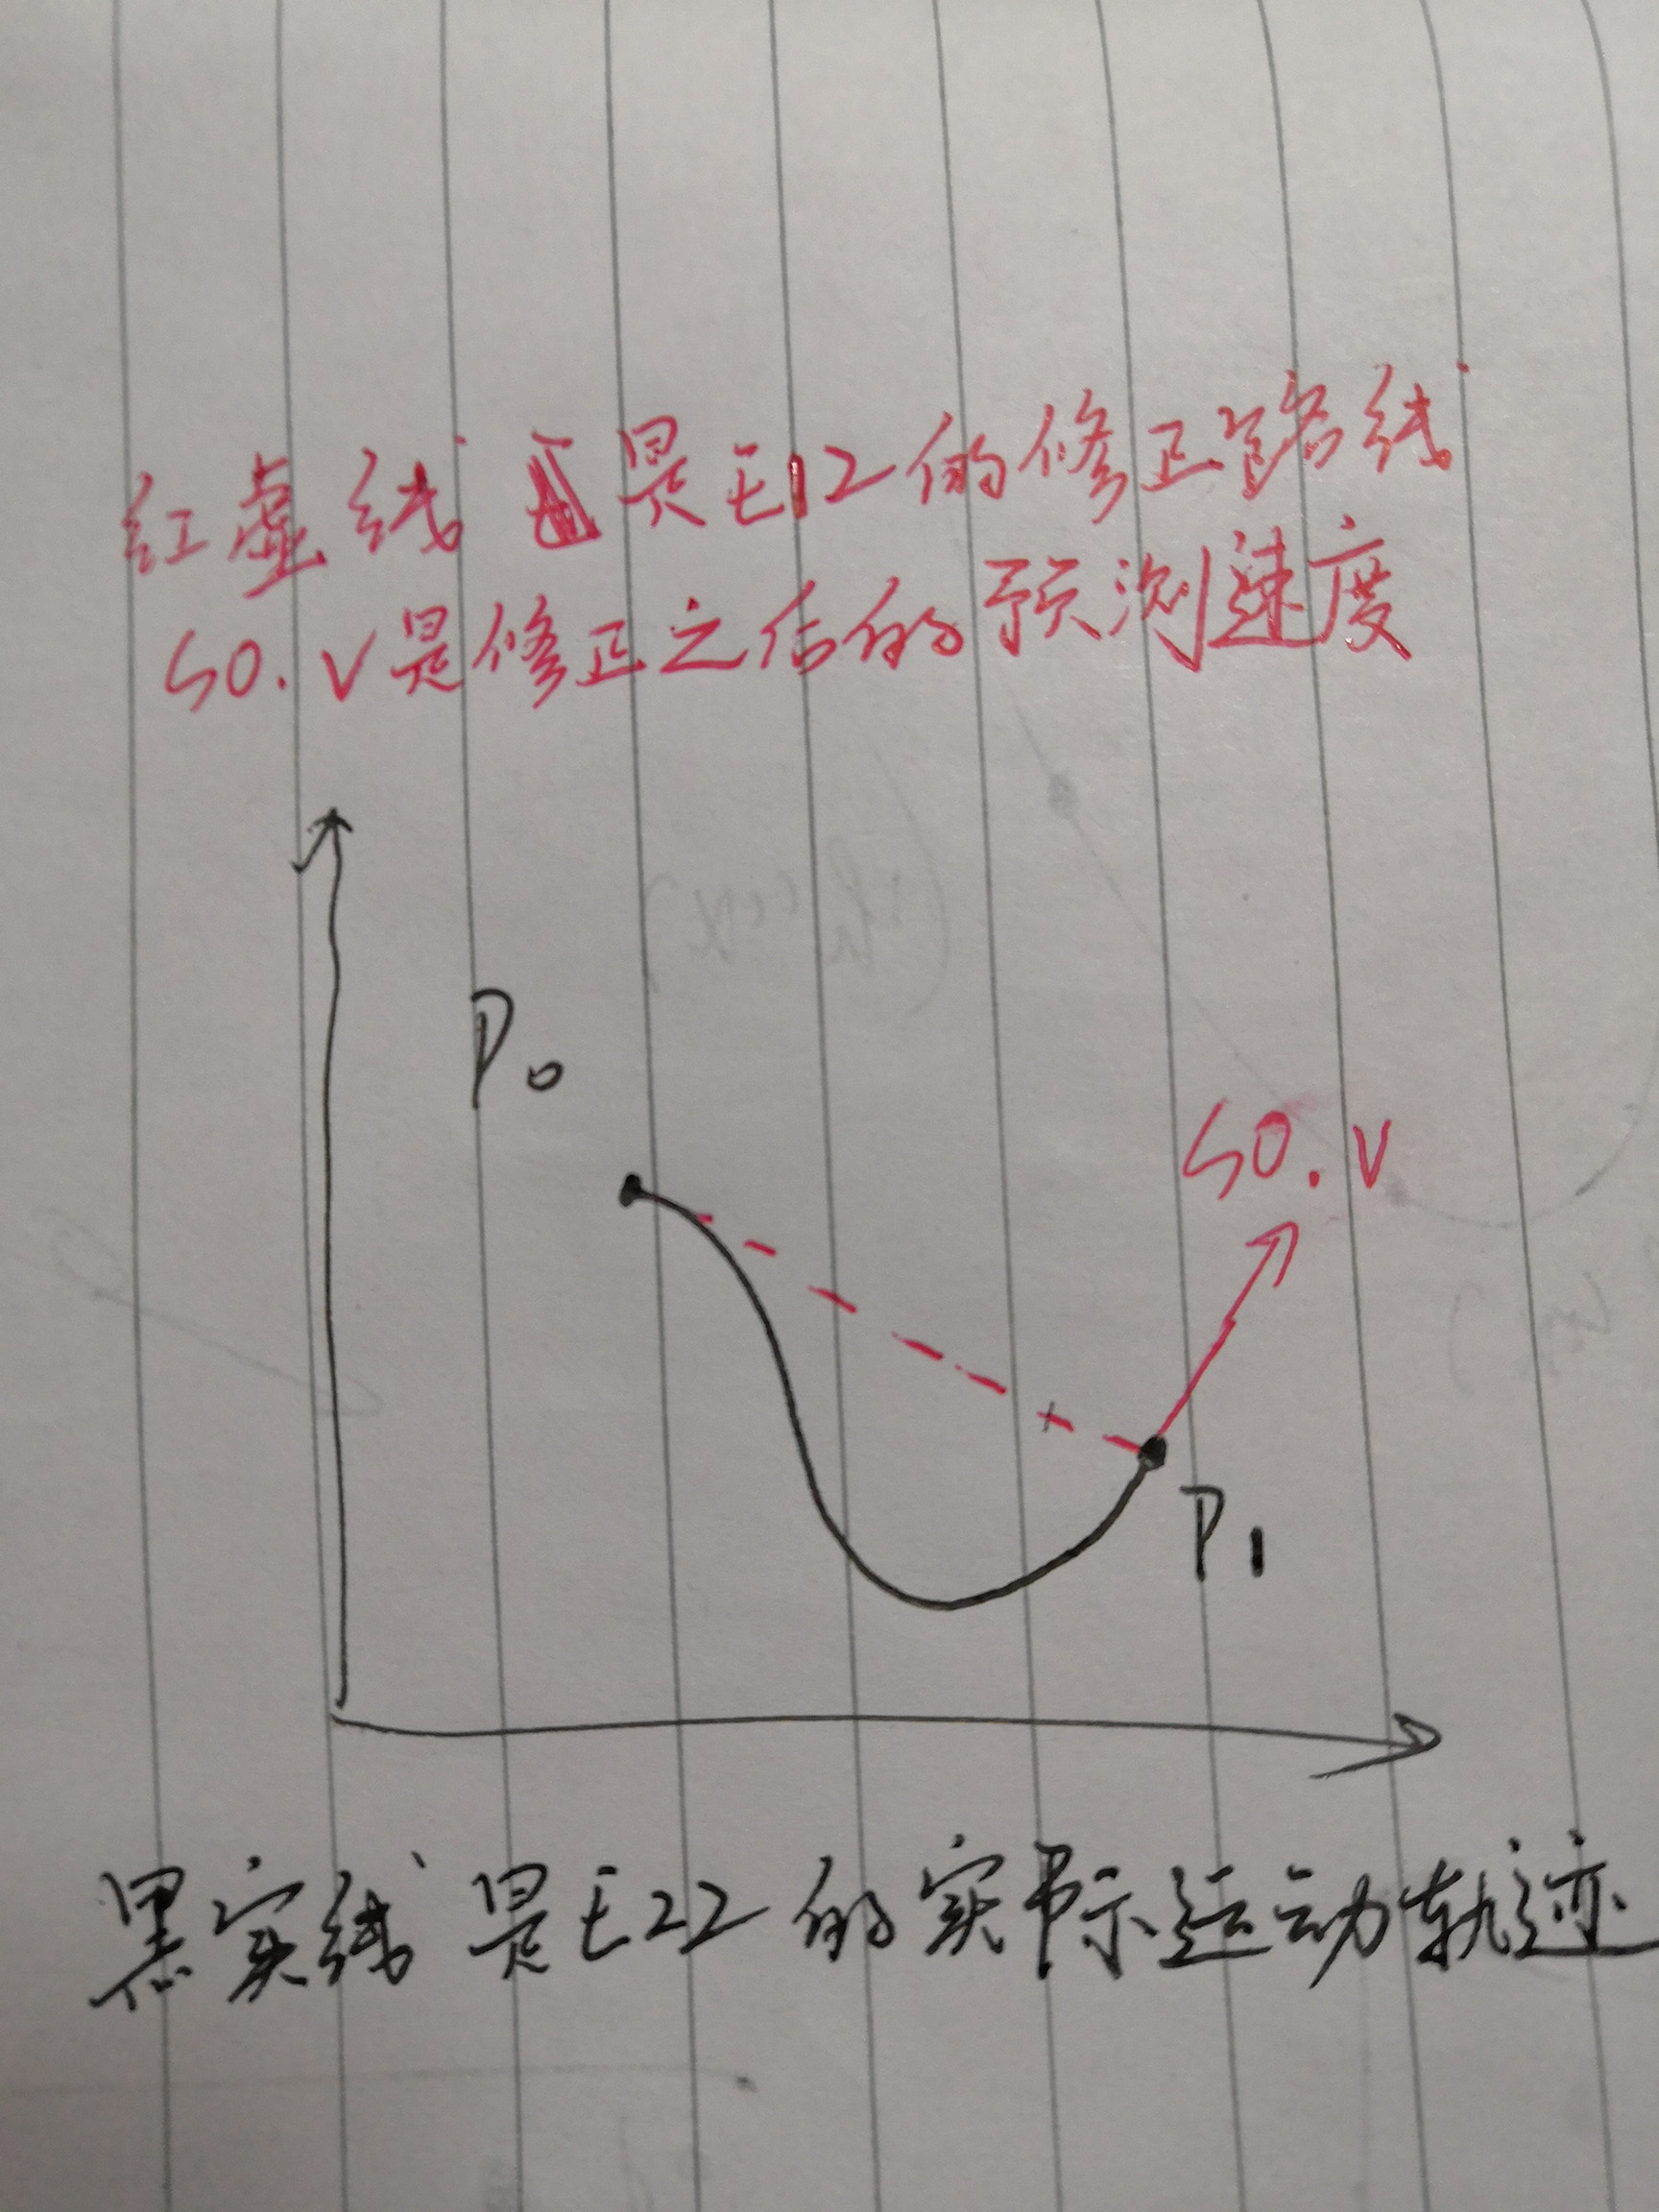 红虚线是E12的修正路线
S0.V是修正之后的预测速度
P0
S0.V
P1
黑实线是E22的实际运动轨迹